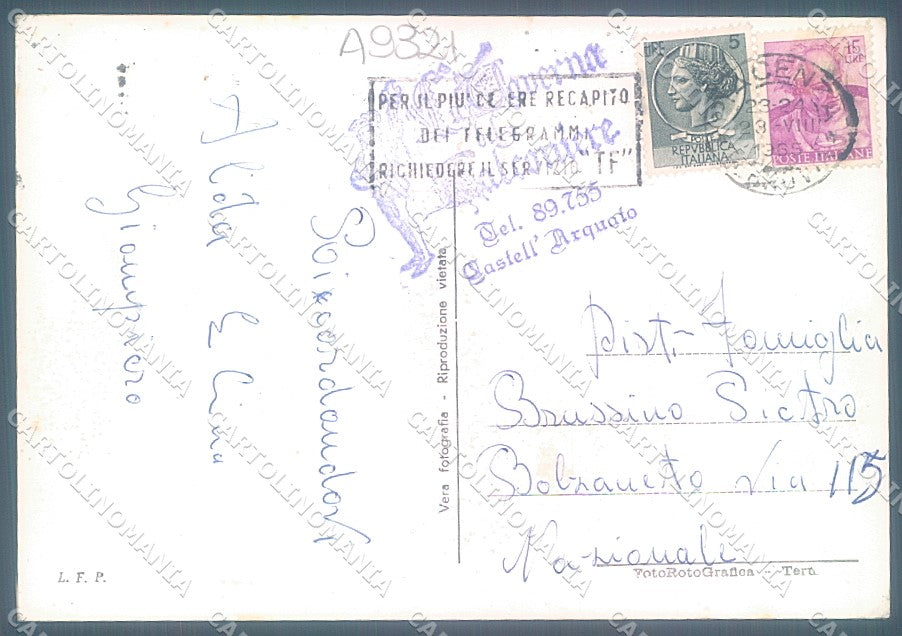 A932
PER IL PIU' CELERE RECAPITO
DEI TELEGRAMMI
RICHIEDERE IL SERVIZIO "TF"
Taverna
Tel. 89.755
Castell' Arquato
LIRE 5
REPUBBLICA
ITALIANA
15
LIRE
POSTE ITALIANE
23-24
VIII
Ricordandovi
Alda E Lina
Giampiero
Vera fotografia - Riproduzione vietata
Dist. Famiglia
Brussino Pietro
Bolzaneto Via 115
Nazionale
L. F. P.
FotoRotoGrafica - Terni
CARTOLINOMANIA